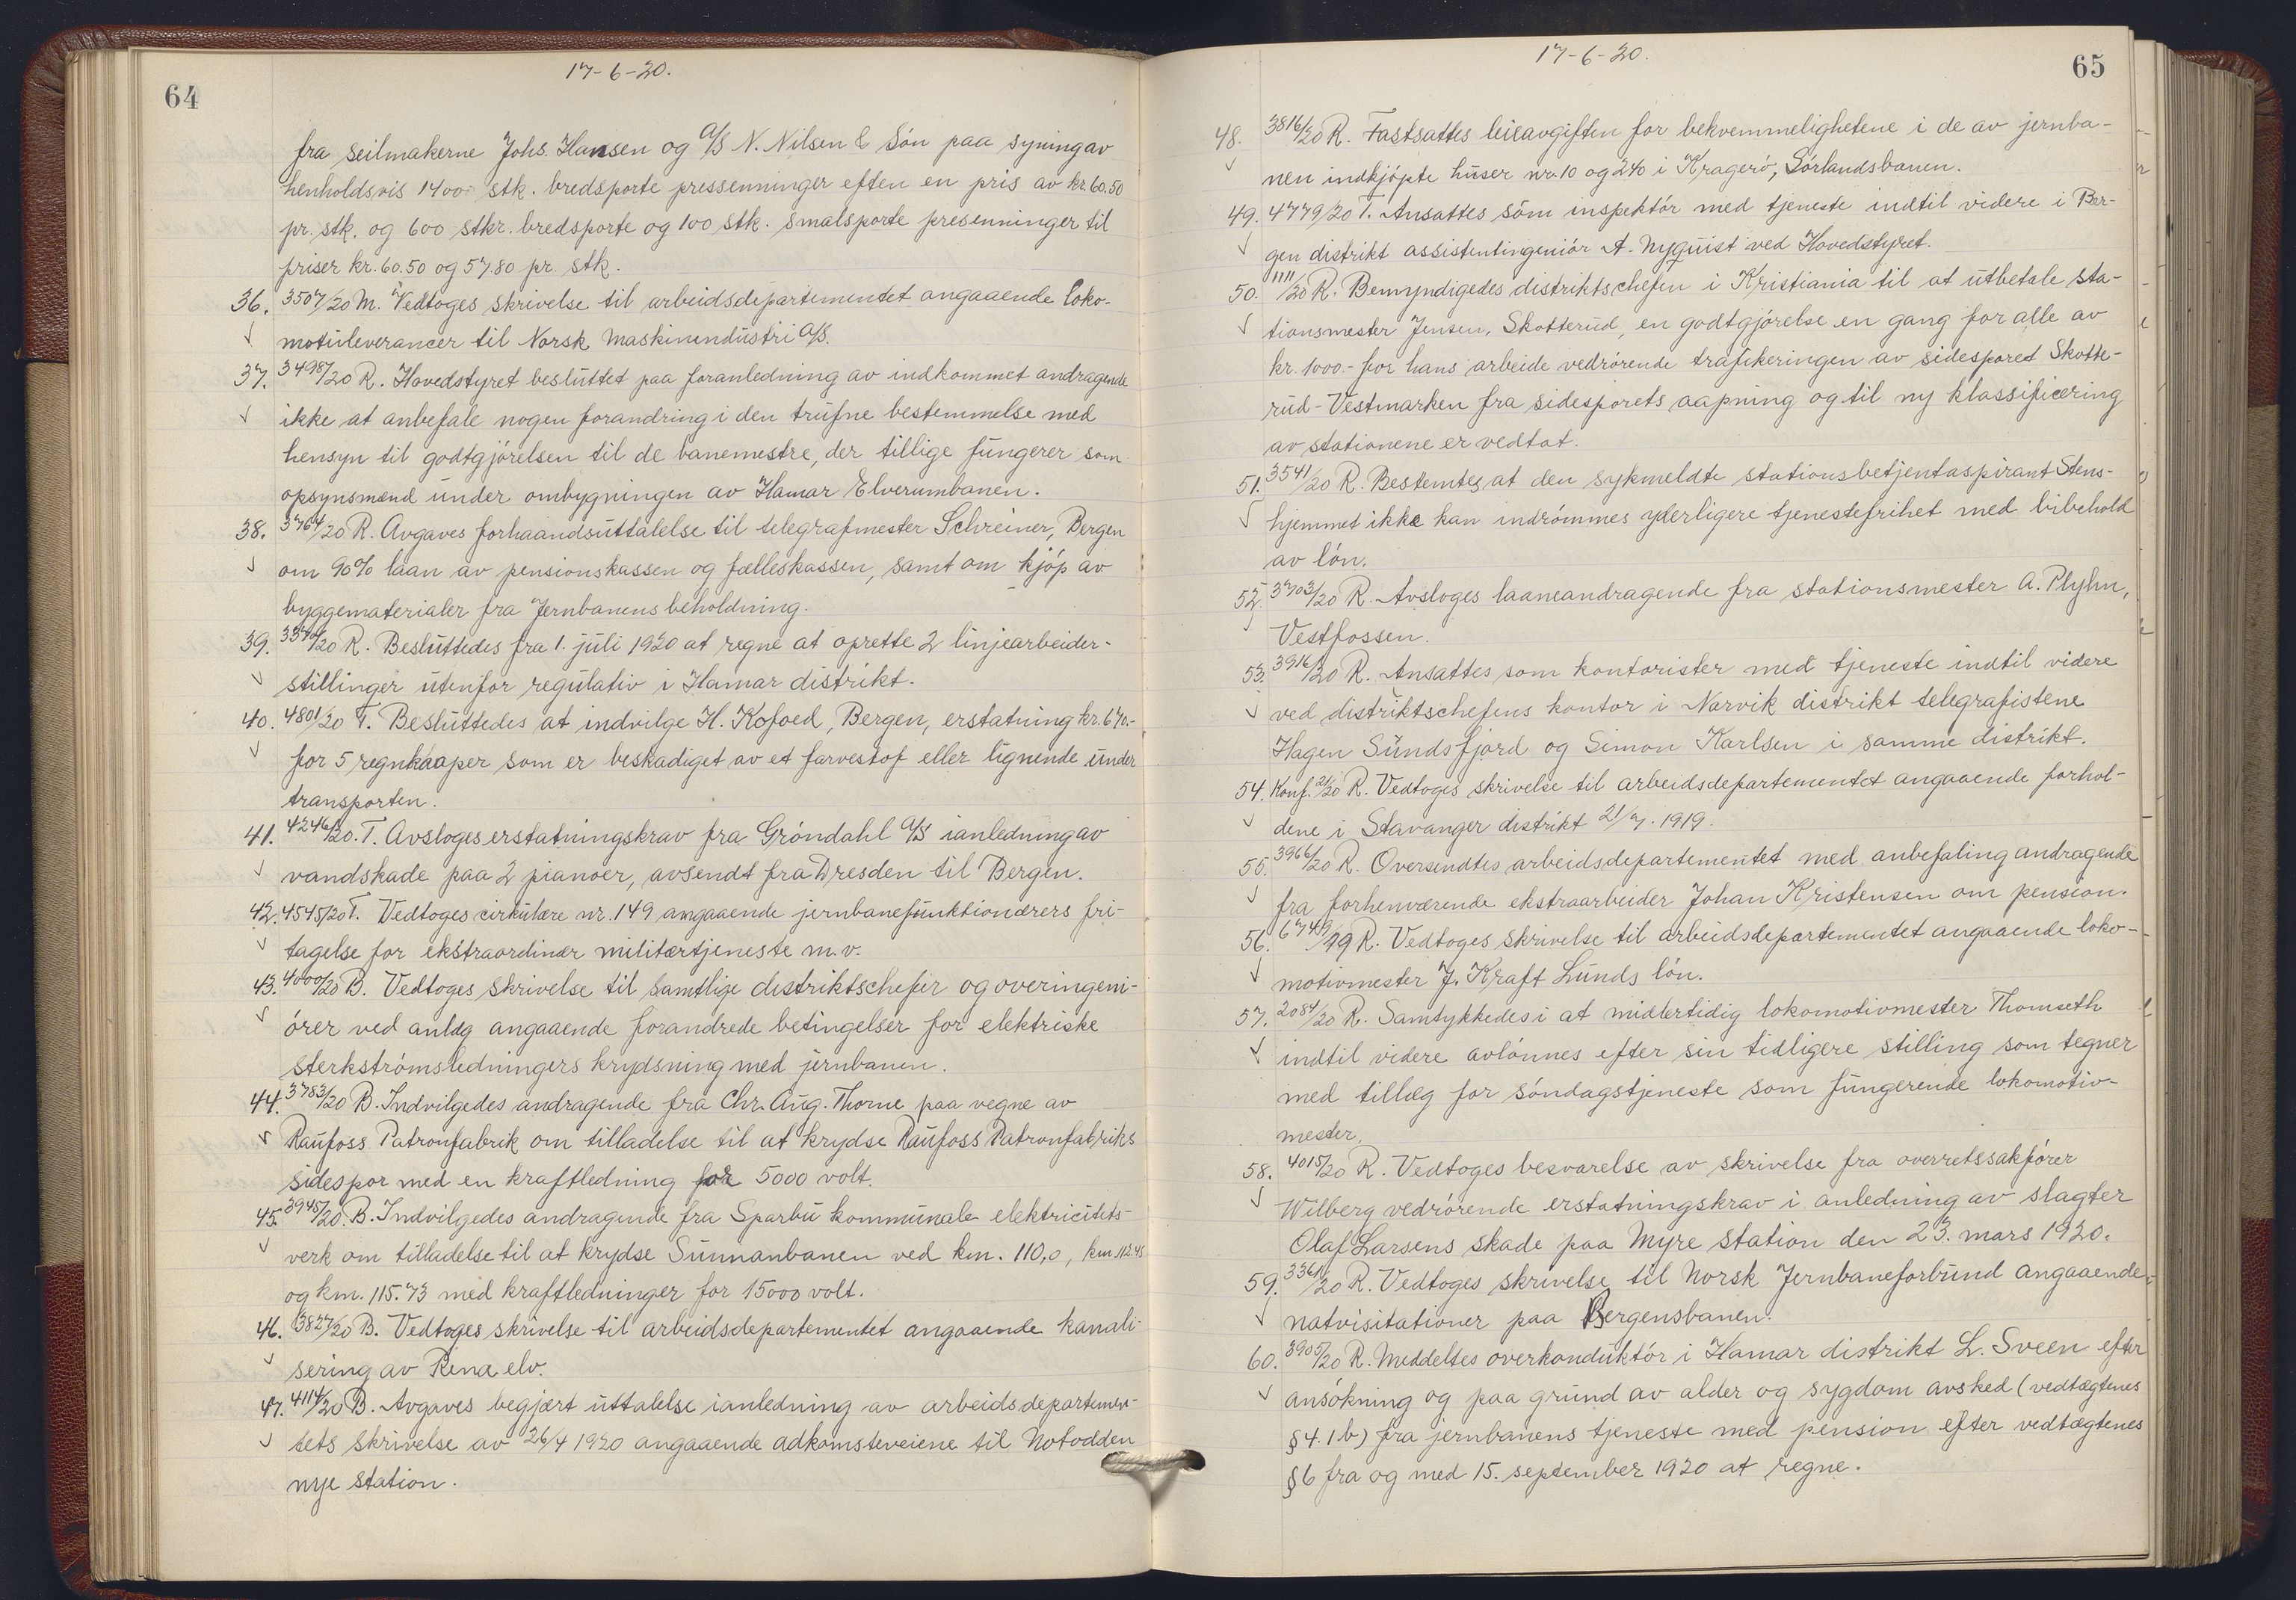 64
17-6-20.
fra seilmakerne Johs. Hansen og A/S N. Nilsen & Søn paa syning av
henholdsvis 1400 stk. bredsporte pressenninger efter en pris av kr. 60.50
pr. stk. og 600 stkr. bredsporte og 100 stk. smalsporte presenninger til
priser kr. 60.50 og 57.80 pr. stk.
36. 3507/20 M. Vedtoges skrivelse til arbeidsdepartementet angaaende loko-
motivleverancer til Norsk Maskinindustri A/S.
37. 3498/20 R. Hovedstyret besluttet paa foranledning av indkommet andragende
ikke at anbefale nogen forandring i den trufne bestemmelse med
hensyn til godtgjørelsen til de banemestre, der tillige fungerer som
opsynsmænd under ombygningen av Hamar Elverumbanen.
38. 3764/20 R. Avgaves forhaandsuttalelse til telegrafmester Schreiner, Bergen
om 90% laan av pensionskassen og fælleskassen, samt om kjøp av
byggematerialer fra Jernbanens beholdning.
39. /20 R. Besluttedes fra 1. juli 1920 at regne at oprette 2 linjearbeider-
stillinger utenfor regulativ i Hamar distrikt.
40. 4801/20 T. Besluttedes at indvilge H. Kofoed, Bergen, erstatning kr. 670.-
for 5 regnkaaper som er beskadiget av et farvestof eller lignende under
transporten.
41. 4246/20. T. Avsloges erstatningskrav fra Grøndahl A/S ianledning av
vandskade paa 2 pianoer, avsendt fra Dresden til Bergen.
42. 4545/20 T. Vedtoges cirkulære nr. 149 angaaende jernbanefunktionærers fri-
tagelse for ekstraordinær militærtjeneste m.v.
43. 4000/20 B. Vedtoges skrivelse til samtlige distriktschefer og overingeni-
ører ved anlæg angaaende forandrede betingelser for elektriske
sterkstrømsledningers krydsning med jernbanen.
44. 3783/20 B. Indvilgedes andragende fra Chr. Aug. Thorne paa vegne av
Raufoss Patronfabrik om tilladelse til at krydse Raufoss Patronfabriks
sidespor med en kraftledning for 5000 volt.
45. 3945/20. B. Indvilgedes andragende fra Sparbu kommunale elektricitets-
verk om tilladelse til at krydse Sunnanbanen ved km. 110,0, km. 112.45
og km. 115.73 med kraftledninger for 15000 volt.
46. 3827/20 B. Vedtoges skrivelse til arbeidsdepartementet angaaende kanali-
sering av Rena elv.
47. 4114/20 B. Avgaves begjært uttalelse ianledning av arbeidsdepartemen-
tets skrivelse av 26/4 1920 angaaende adkomstveiene til Notodden
nye station.
65
17-6-20.
48. 3816/20 R. Fastsattes leieavgiften for bekvemmelighetene i de av jernba-
nen indkjøpte huser nr. 10 og 240 i Kragerø, Sørlandsbanen.
49. 4779/20 T. Ansattes som inspektør med tjeneste indtil videre i Ber-
gen distrikt assistentingeniør A. Nyquist ved Hovedstyret.
50. 1111/20 R. Bemyndigedes distriktschefen i Kristiania til at utbetale sta-
tionsmester Jensen, Skotterud, en godtgjørelse en gang for alle av
kr. 1000.- for hans arbeide vedrørende trafikeringen av sidesporet Skotte-
rud-Vestmarken fra sidesporets aapning og til ny klassificering
av stationene er vedtat.
51. 3541/20 R. Bestemtes at den sykmeldte stationsbetjentaspirant Stens-
hjemmet ikke kan indrømmes yderligere tjenestefrihet med bibehold
av løn.
52. 3703/20 R. Avsloges laaneandragende fra stationsmester A. Plyhn,
Vestfossen.
53. 3916/20 R. Ansattes som kontorister med tjeneste indtil videre
ved distriktschefens kontor i Narvik distrikt telegrafistene
Hagen Sundsfjord og Simon Karlsen i samme distrikt.
54. Konf. 21/20 R. Vedtoges skrivelse til arbeidsdepartementet angaaende forhol-
dene i Stavanger distrikt 21/7. 1919.
55. 3966/20 R. Oversendtes arbeidsdepartementet med anbefaling andragende
fra forhenværende ekstraarbeider Johan Kristensen om pension.
56. 6749/19 R. Vedtoges skrivelse til arbeidsdepartementet angaaende loko-
motivmester J. Kraft Lunds løn.
57. 2084/20 R. Samtykkedes i at midlertidig lokomotivmester Thomseth
indtil videre avlønnes efter sin tidligere stilling som tegner
med tillæg for søndagstjeneste som fungerende lokomotiv-
mester.
58. 4015/20 R. Vedtoges besvarelse av skrivelse fra overretssakfører
Wilberg vedrørende erstatningskrav i anledning av slagter
Olaf Larsens skade paa Myre station den 23. mars 1920.
59. 3361/20 R. Vedtoges skrivelse til Norsk Jernbaneforbund angaaende
natvisitationer paa Bergensbanen.
60. 3905/20 R. Meddeltes overkonduktør i Hamar distrikt L. Sveen efter
ansøkning og paa grund av alder og sygdom avsked (vedtægtenes
§4. 1b) fra jernbanens tjeneste med pension efter vedtægtenes
§6 fra og med 15. september 1920 at regne.